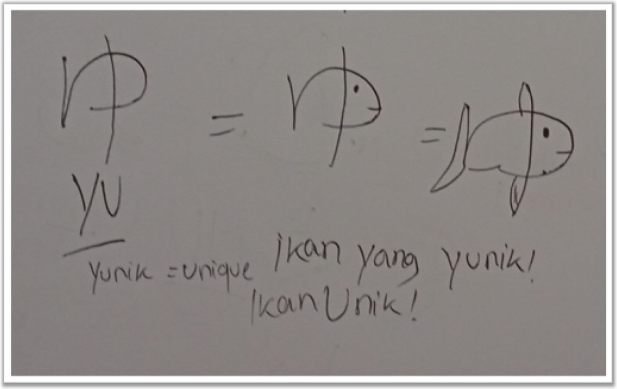 ゆ = ゆ =
YU
yunik = unique ikan yang yunik!
Ikan Unik!